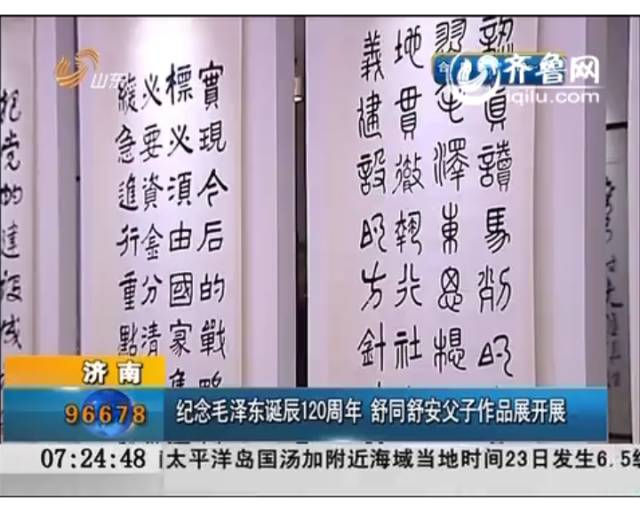 山东
齐鲁网
iqilu.com
認真讀馬列的
習毛澤東思想
地貫徹執行社
義建設的方針
實現今后的戰略
標必須由國家集
必要資金分清
緩急進行重點
把党的建設成
济南
96678
纪念毛泽东诞辰120周年 舒同舒安父子作品展开展
07:24:48
太平洋岛国汤加附近海域当地时间23日发生6.5级